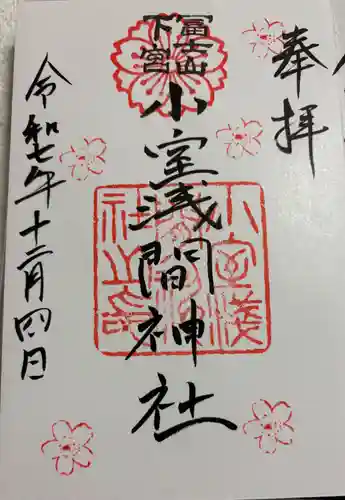 奉拝
冨士山
下宮
小室浅間神社
令和七年十二月四日